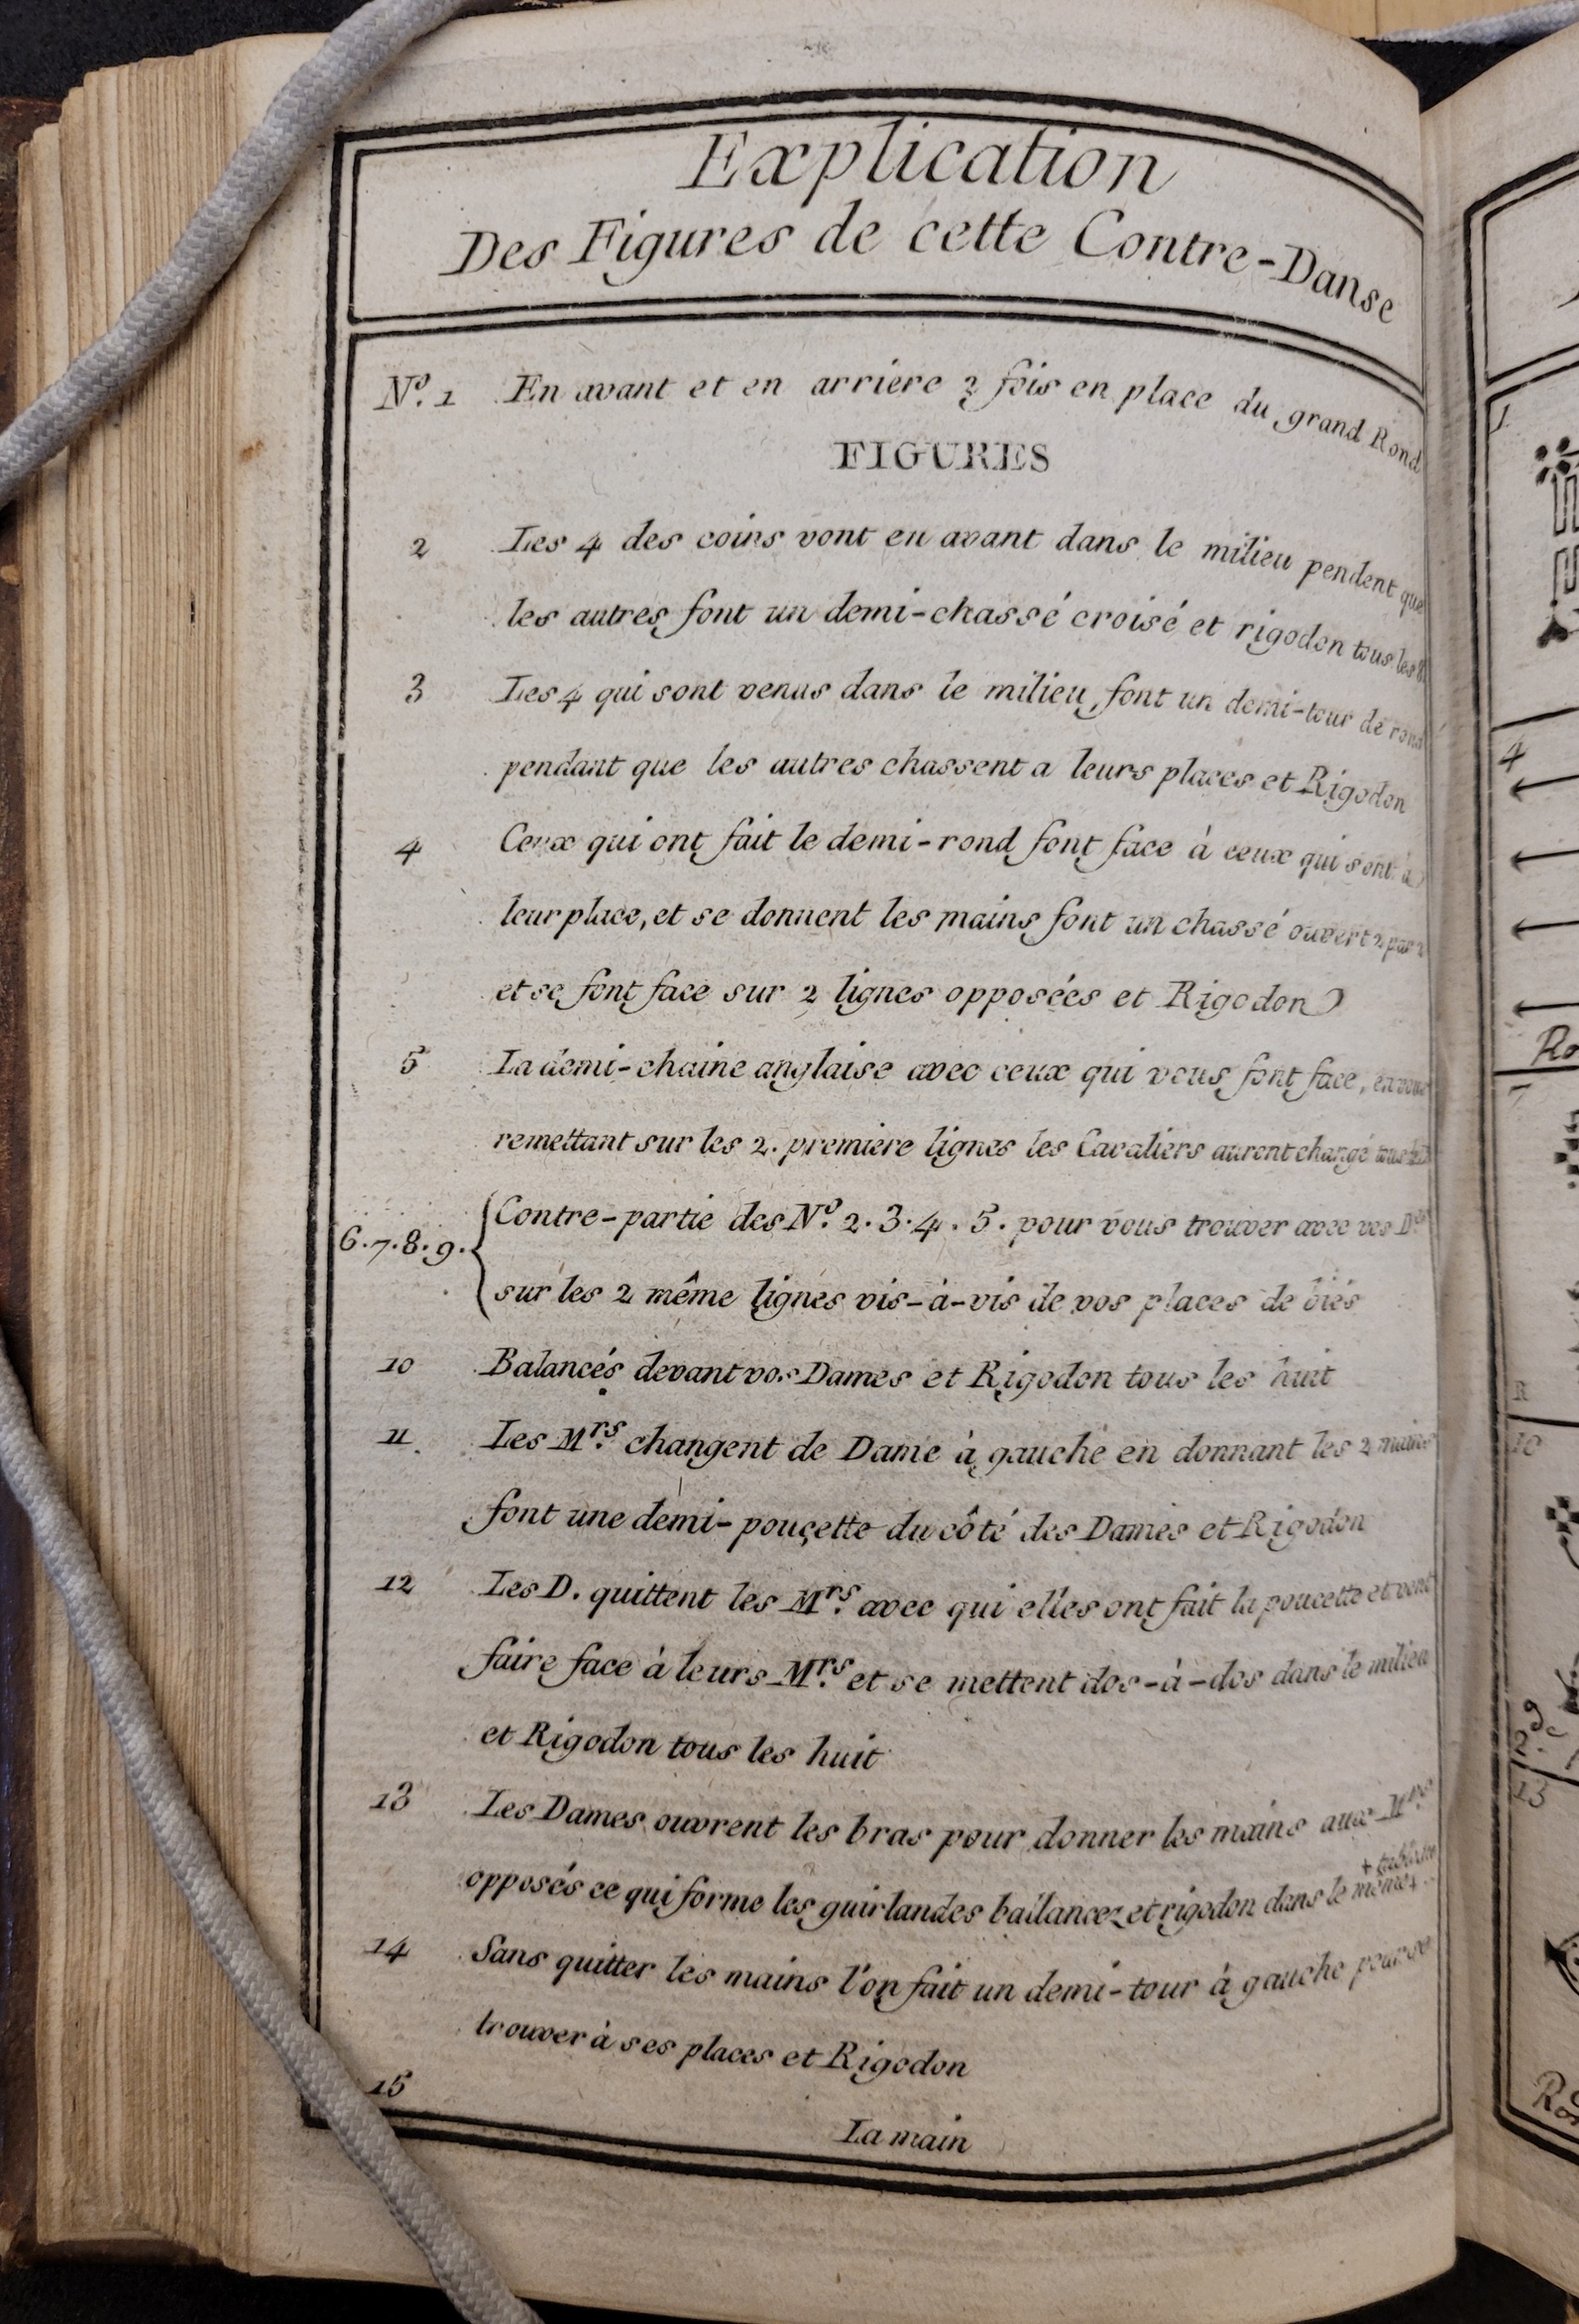 Explication
Des Figures de cette Contre-Danse
N.º 1 En avant et en arriere 2 fois en place du grand Rond
FIGURES
2 Les 4 des coins vont en avant dans le milieu pendent que
les autres font un demi-chassé croisé et rigodon tous les 8
3 Les 4 qui sont venus dans le milieu, font un demi-tour de rond
pendant que les autres chassent a leurs places et Rigodon
4 Ceux qui ont fait le demi-rond font face à ceux qui sont à
leur place, et se donnent les mains font un chassé ouvert 2 par 2
et se font face sur 2 lignes opposées et Rigodon
5 La demi-chaine anglaise avec ceux qui vous font face, en vous
remettant sur les 2. premiere lignes les Cavaliers auront changé
6.7.8.9. Contre-partie des N.º 2.3.4.5. pour vous trouver avec vos D.es
sur les 2 même lignes vis-à-vis de vos places de biés
10 Balancés devant vos Dames et Rigodon tous les huit
11. Les M.rs changent de Dame à gauche en donnant les 2 mains
font une demi-pouçette du côté des Dames et Rigodon
12 Les D. quittent les M.rs avec qui elles ont fait la poucette et vont
faire face à leurs M.rs et se mettent dos-à-dos dans le milieu
et Rigodon tous les huit
13 Les Dames ouvrent les bras pour donner les mains aux M.rs
+ tableau
opposés ce qui forme les guirlandes bailancez et rigodon dans le même +
14 Sans quitter les mains l'on fait un demi-tour à gauche pour se
trouver à ses places et Rigodon
15
La main
1
4
Ro
7
R
10
9
2.de
13
Ro